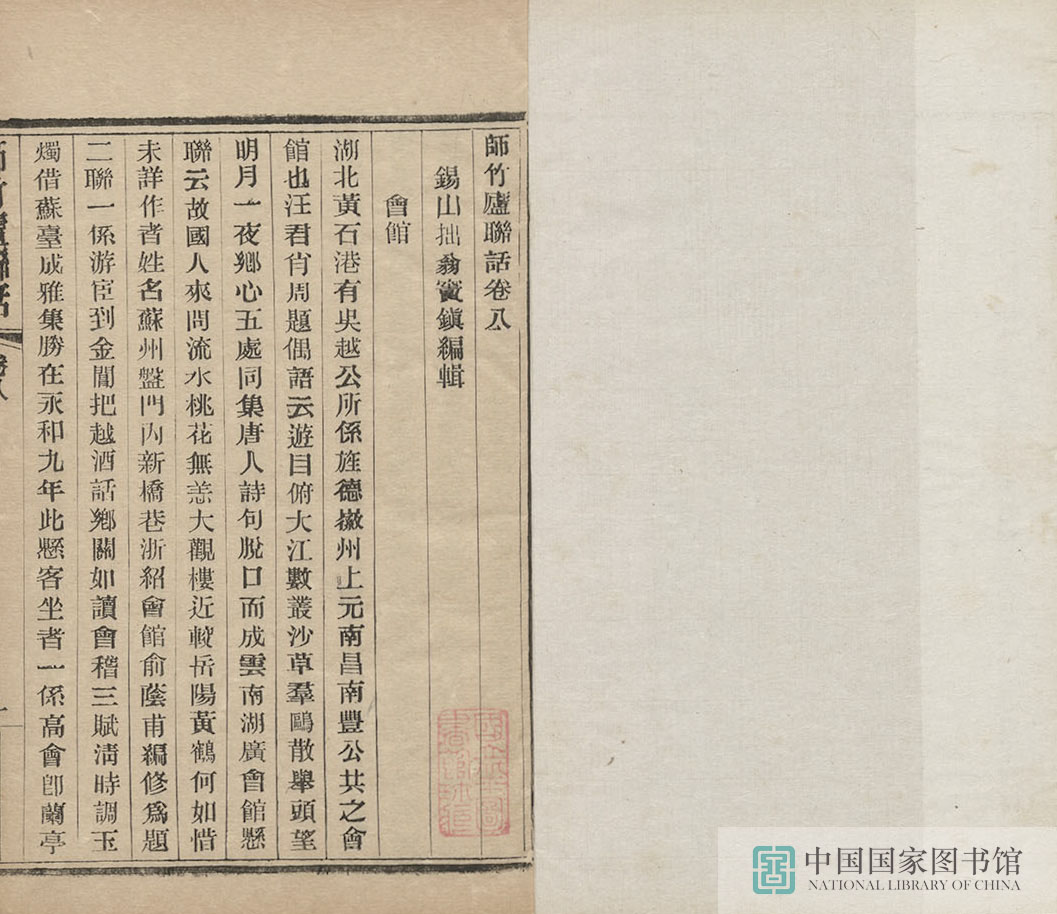 師竹廬聯話卷八
錫山拙翁竇鎮編輯
會館
湖北黃石港有吳越公所係旌德徽州上元南昌南豐公共之會
館也汪君肖周題偶語云遊目俯大江數叢沙草羣鷗散舉頭望
明月一夜鄉心五處同集唐人詩句脫口而成雲南湖廣會館懸
聯云故國人來問流水桃花無恙大觀樓近較岳陽黃鶴何如惜
未詳作者姓名蘇州盤門內新橋巷浙紹會館俞蔭甫編修爲題
二聯一係游宦到金閶把越酒話鄉關如讀會稽三賦淸時調玉
燭借蘇臺成雅集勝在永和九年此懸客坐者一係高會卽蘭亭
師竹廬聯話
卷八
一
中国国家图书馆
NATIONAL LIBRARY OF CHINA